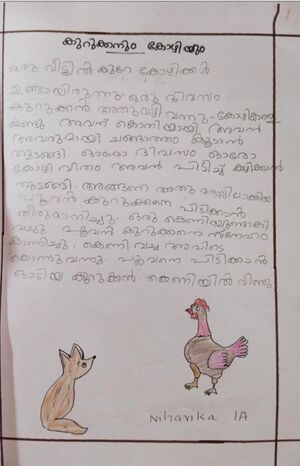 കുറുക്കനും കോഴിയും
ഒരു വീട്ടിൽ കുറേ കോഴികൾ
ഉണ്ടായിരുന്നു. ഒരു ദിവസം
കുറുക്കൻ അതുവഴി വന്നു. കോഴികളെ
കണ്ടു അവന് കൊതിയായി അവൻ
അവരുമായി ചങ്ങാത്തം കൂടാൻ
തുടങ്ങി. ഓരോ ദിവസം ഓരോ
കോഴി വീതം അവൻ പിടിച്ച് കഴിക്കാൻ
തുടങ്ങി. അങ്ങനെ അതു മനസ്സിലാക്കിയ
പൂവൻ കുറുക്കനെ പിടിക്കാൻ
തീരുമാനിച്ചു. ഒരു കെണിയുണ്ടാക്കി
വച്ചു പൂവൻ കുറുക്കനെ സ്നേഹം
കാണിച്ചു. കെണി വച്ച അവിടെ
കൊണ്ടുവന്നു. പൂവനെ പിടിക്കാൻ
ഓടിയ കുറുക്കൻ കെണിയിൽ വീണു
Niharika 1A